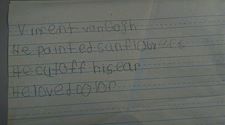 Vincent vanGogh
He painted sunflowers
He cutoff his ear
He loved color